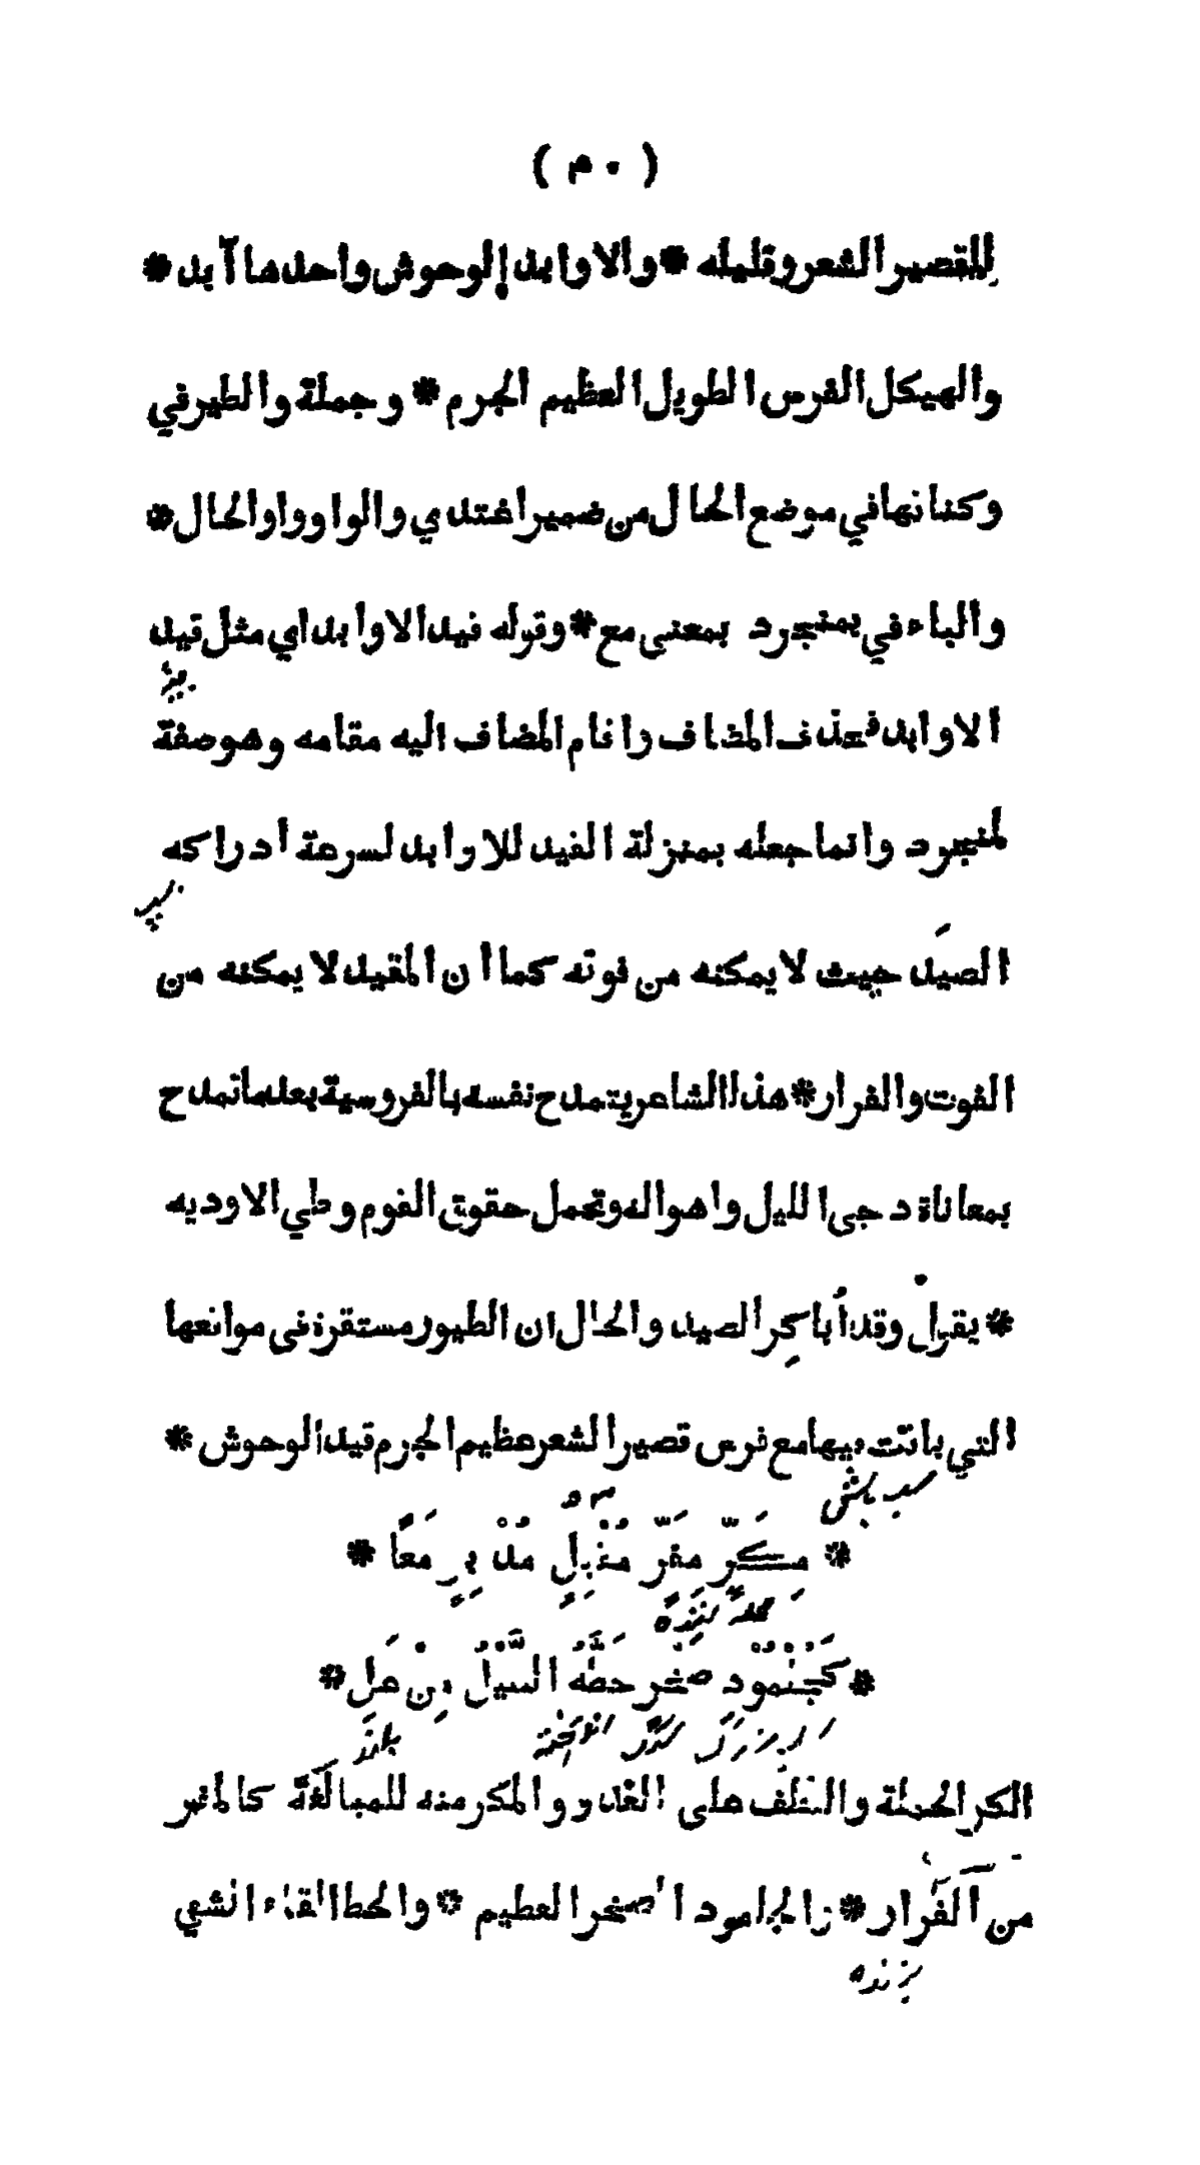 ( ٣٠ )
القصير الشعر وقليله * والاوابد الوحوش واحدها آبد *
والهيكل الفرس الطويل العظيم الجرم * وجملة والطير في
وكناتها في موضع الحال من ضمير اغتدي والواو واو الحال *
والباء في بمنجرد بمعنى مع * وقوله قيد الاوابد اي مثل قيد
الاوابد فحذف المضاف واقام المضاف اليه مقامه وهو صفة
لمنجرد وانما جعله بمنزلة القيد للاوابد لسرعة أدراكه
الصيد حيث لا يمكنه من فوته كما أن المقيد لا يمكنه من
الفوت والفرار * هذا الشاعر يتمدح نفسه بالفروسية بعد ما تمدح
بمعاناة دجى الليل واهواله وتحمل حقوق القوم وطي الاوديه
* يقول وقد أباكِر الصيد والحال ان الطيور مستقرة فى مواقعها
التي باتت فيها مع فرس قصير الشعر عظيم الجرم قيد الوحوش *
* مِكَرٍّ مِفَرٍّ مُقْبِلٍ مُدْبِرٍ مَعًا *
* كَجُلْمُوْدِ صَخْرٍ حَطَّهُ السَّيْلُ مِنْ عَلِ *
الكر الحملة والتلف على العدو والمكر منه للمبالغة كالمفر
من الفرار * والجلمود الصخر العظيم * والحط القاء الشي